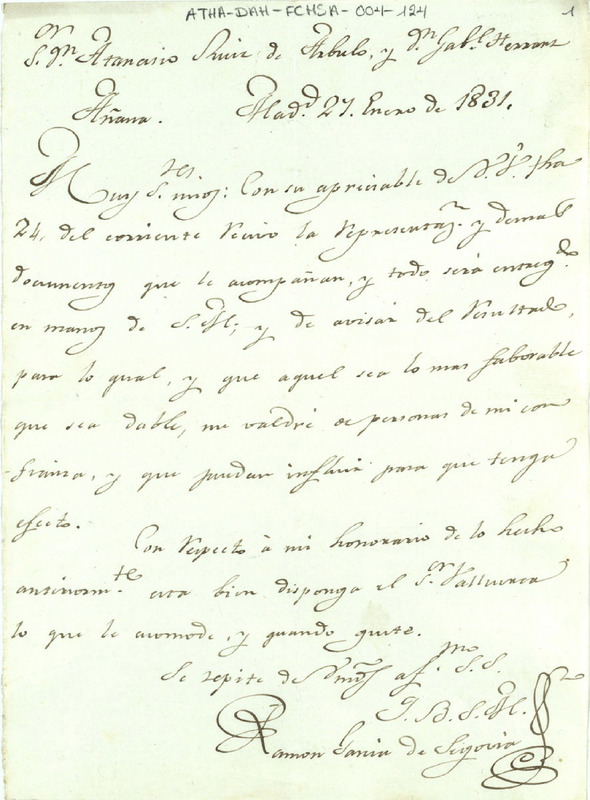 ATHA-DAH-FCHSA-004-124
1
S.or Dn Atanasio Ruiz de Arbulo, y Dn Gab.l Herranz
Añana. Mad.d 27. Enero de 1831.
Muy S.res mios: Con su apreciable de V.V. fha
24, del corriente recivo la representaz.n y demas
documentos que le acompañan, y todo será entreg.do
en manos de S.M.; y de avisar del resultado,
para lo qual, y que aquel sea lo mas faborable
que sea dable, me valdré de personas de mi con
-fianza, y que puedan influir para que tenga
efecto.
Con respecto à mi honorario de lo hecho
anteriorm.te esta bien disponga el S.or Valluerca
lo que le acomode, y quando guste.
Se repite de Vms af.mo S.S.
Q.B.S.M.
Ramon Garcia de Segovia